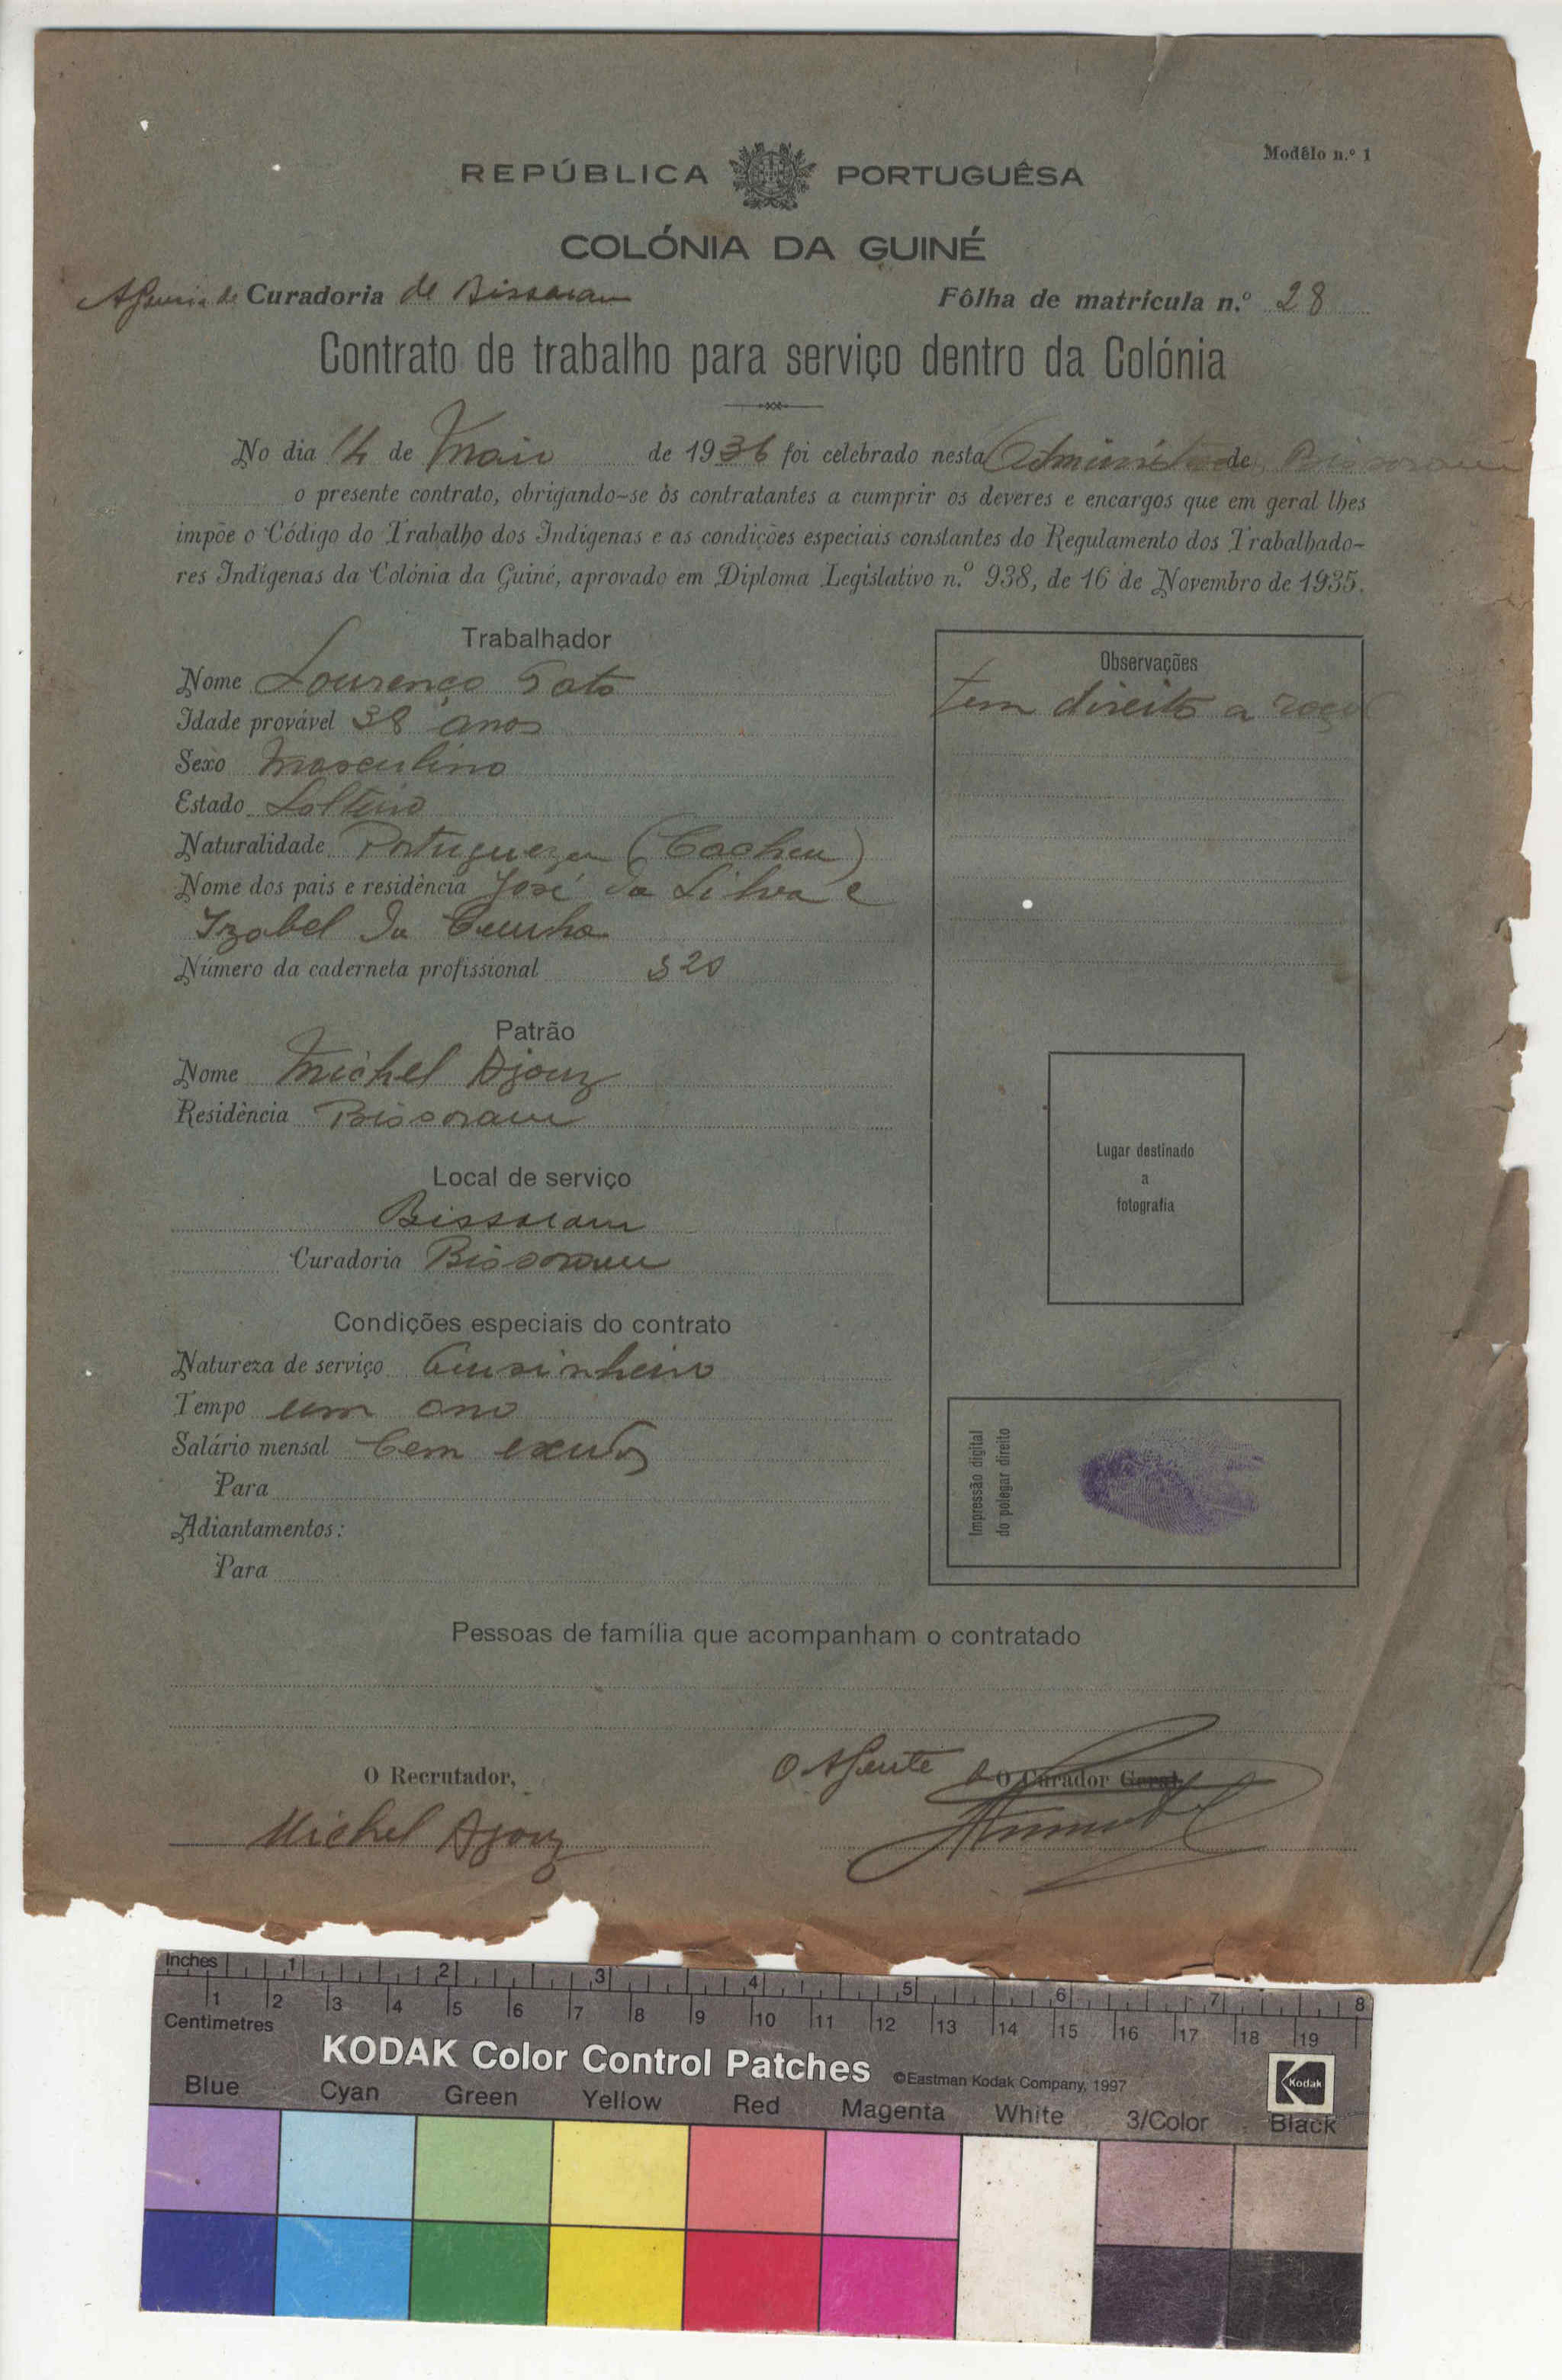 Modêlo n.º 1
REPÚBLICA PORTUGUÊSA
COLÓNIA DA GUINÉ
Agencia de Curadoria de Bissoram Fôlha de matrícula n.º 28
Contrato de trabalho para serviço dentro da Colónia
No dia 14 de Maio de 1936 foi celebrado nesta de Bissoram
o presente contrato, obrigando-se os contratantes a cumprir os deveres e encargos que em geral lhes
impõe o Código do Trabalho dos Indígenas e as condições especiais constantes do Regulamento dos Trabalhado-
res Indígenas da Colónia da Guiné, aprovado em Diploma Legislativo n.º 938, de 16 de Novembro de 1935.
Trabalhador
Nome Lourenço
Idade provável 38 anos
Sexo Masculino
Estado Solteiro
Naturalidade Portugueza (Cacheu)
Nome dos pais e residência José da Silva e
Izabel da Cunha
Número da caderneta profissional 320
Observações
tem direito a
Patrão
Nome Michel Ajouz
Residência Bissoram
Local de serviço
Bissoram
Curadoria Bissoram
Lugar destinado
a
fotografia
Condições especiais do contrato
Natureza de serviço Cusinheiro
Tempo um ano
Salário mensal Cem escudos
Para
Adiantamentos:
Para
Impressão digital
do polegar direito
Pessoas de família que acompanham o contratado
O Recrutador,
O Agente do O Curador Geral
Michel Ajouz
Inches 1 2 3 4 5 6 7 8
Centimetres 1 2 3 4 5 6 7 8 9 10 11 12 13 14 15 16 17 18 19
KODAK Color Control Patches ©Eastman Kodak Company, 1997 Kodak
Blue Cyan Green Yellow Red Magenta White 3/Color Black